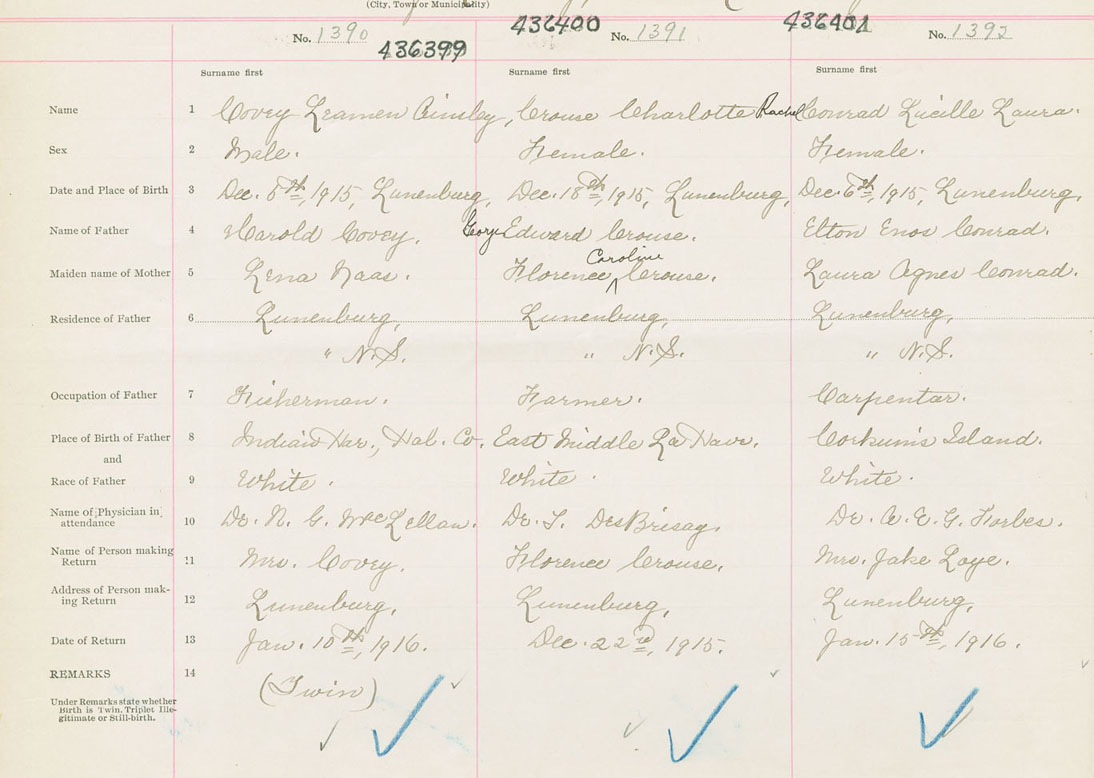 (City, Town or Municipality)
436399 436400 436401
No. 1390 No. 1391 No. 1392
Surname first Surname first Surname first
Name 1 Covey Leamen Ainsley, Crouse Charlotte Rachel Conrad Lucille Laura.
Sex 2 Male. Female. Female.
Date and Place of Birth 3 Dec. 8th, 1915, Lunenburg, Dec. 18th, 1915, Lunenburg, Dec. 6th, 1915, Lunenburg,
Name of Father 4 Harold Covey. George Edward Crouse. Elton Enos Conrad.
Maiden name of Mother 5 Lena Naas. Florence Caroline Crouse. Laura Agnes Conrad.
Residence of Father 6 Lunenburg, Lunenburg, Lunenburg,
" N.S. " N.S. " N.S.
Occupation of Father 7 Fisherman. Farmer. Carpentar.
Place of Birth of Father 8 Indian Har., Hal. Co. East Middle La Have. Corkum's Island.
and
Race of Father 9 White. White. White.
Name of Physician in attendance 10 Dr. N. G. McLellan. Dr. DesBrisay, Dr. A. E. G. Forbes.
Name of Person making Return 11 Mrs. Covey. Florence Crouse. Mrs. Jake Loye.
Address of Person making Return 12 Lunenburg, Lunenburg, Lunenburg,
Date of Return 13 Jan. 10th, 1916. Dec. 22nd, 1915. Jan. 15th, 1916.
REMARKS 14 (Twin)
Under Remarks state whether
Birth is Twin. Triplet Ille-
gitimate or Still-birth.